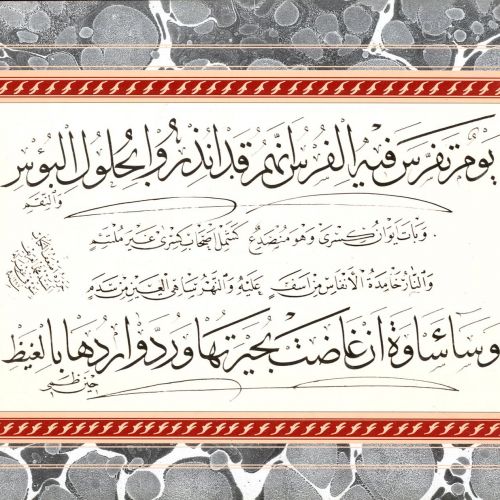 يوم تفرس فيه الفرس انهم قد انذروا بحلول البؤس
والنقم
وبات ايوان كسرى وهو منصدع كشمل اصحاب كسرى غير ملتئم
والنار خامدة الأنفاس من اسف عليه والنهر ساهي العين من سدم
وساء ساوة ان غاضت بحيرتها ورد واردها بالغيظ
حين ظمي